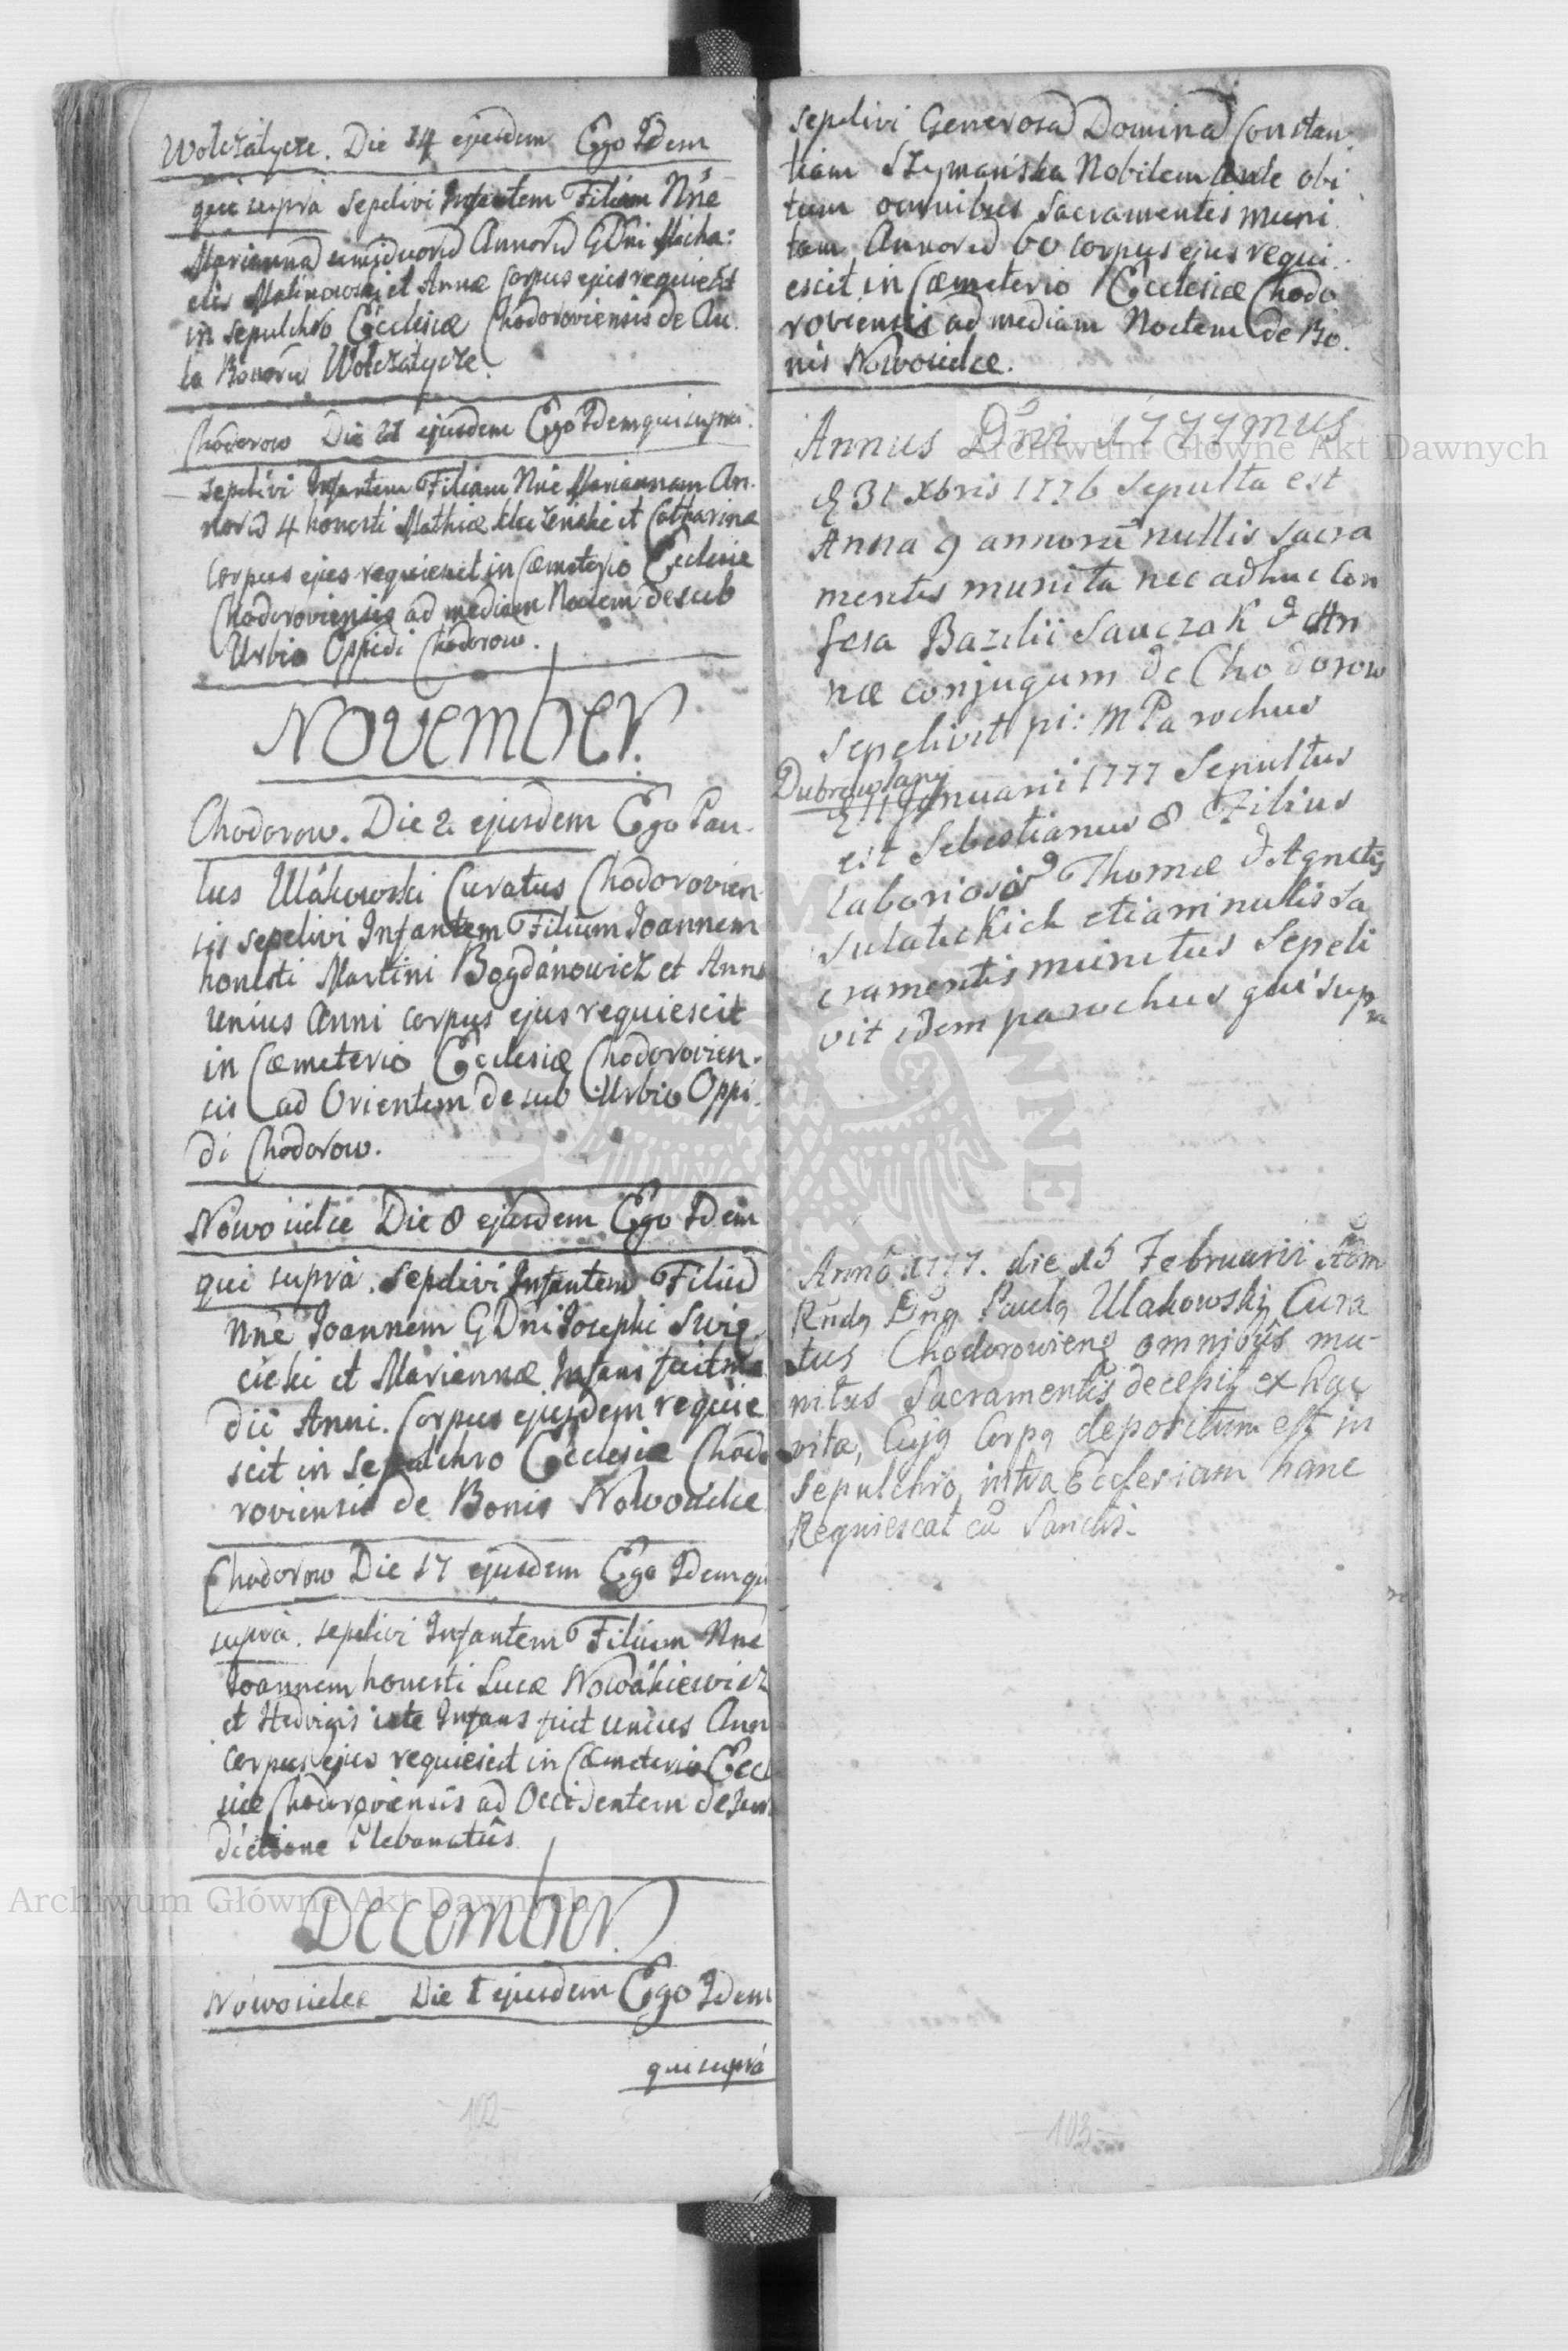 Wolczatycze. Die 14 ejusdem Ego Idem
qui supra sepelivi Infantem Filiam Nñe
Mariannã Annorũ GDni Micha:
elis Malinowski et Annæ Corpus ejus requiescit
in sepulchro Ecclesiæ Chodoroviensis de Au.
la Bonorũ Wolczatycze.
Chodorow Die 21 ejusdem Ego Idem qui supra.
sepelivi Infantem Filiam Nñe Mariannam An.
norũ 4 honesti Mathiæ et Catharinæ
Corpus ejus requiescit in Cæmeterio Ecclesiæ
Chodoroviensis ad mediam Noctem de sub
Urbio Oppidi Chodorow.
November.
Chodorow. Die 2 ejusdem Ego Pau.
lus Ulákowski Curatus Chodorovien
sis sepelivi Infantem Filium Joannem
honesti Martini Bogdánowicz et Annæ
Unius Anni corpus ejus requiescit
in Cæmeterio Ecclesiæ Chodorovien.
sis ad Orientem de sub Urbio Oppi.
di Chodorow.
Nowosielce Die 8 ejusdem Ego Idem
qui supra. sepelivi Infantem Filiũ
Nñe Joannem GDni Josephi Swię
cicki et Mariannæ Infans fuit me
dii Anni. Corpus ejusdem requie
scit in Sepulchro Ecclesiæ Chodo
roviensis de Bonis Nowosielce
Chodorow Die 17 ejusdem Ego Idem qui
supra. sepelivi Infantem Filium Nñe
Joannem honesti Lucæ Nowákiewicz
et Hedvigis iste Infans fuit unius Ann
corpus ejus requiescit in Cæmeterio Eccl
siæ Chodoroviensis ad Occidentem de Juris
dictione Plebanatûs
December.
Nowosielce Die 1 ejusdem Ego Idem
qui supra
102
sepelivi Generosã Dominã Constan.
tiam Szymańska Nobilem ante obi
tum omnibus Sacramentis muni
tam Annorũ 60 corpus ejus requi.
escit in Cæmeterio Ecclesiæ Chodo
roviensis ad mediam Noctem de Bo.
nis Nowosielce.
Annus Dñi 1777mus
31 Xbris 1776 Sepulta est
Anna 9 annorũ nullis sacra
mentis munita nec adhuc con
fesa Bazilii Sawczak & An
næ conjugum de Chodorow
sepelivit pi: m Parochus
Dubrowlany
11 Januarii 1777 Sepultus
est Sebestianus 8 Filius
Laboriosorũ Thomæ & Agnetis
Sulatickich etiam nullis sa
cramentis munitus Sepeli
vit idem parochus qui supra
Annô 1777. die 15 Februarii Adm
Rñdg Dñg Paulg Ulakowski Cura
tus Chodorowieng omnibûs mu-
nitus Sacramentis decessit ex hac
vita, Cujg Corpg depositum est in
sepulchro, intra Ecclesiam hanc
Requiescat cũ Sanctis.
103
Archiwum Główne Akt Dawnych
Archiwum Główne Akt Dawnych